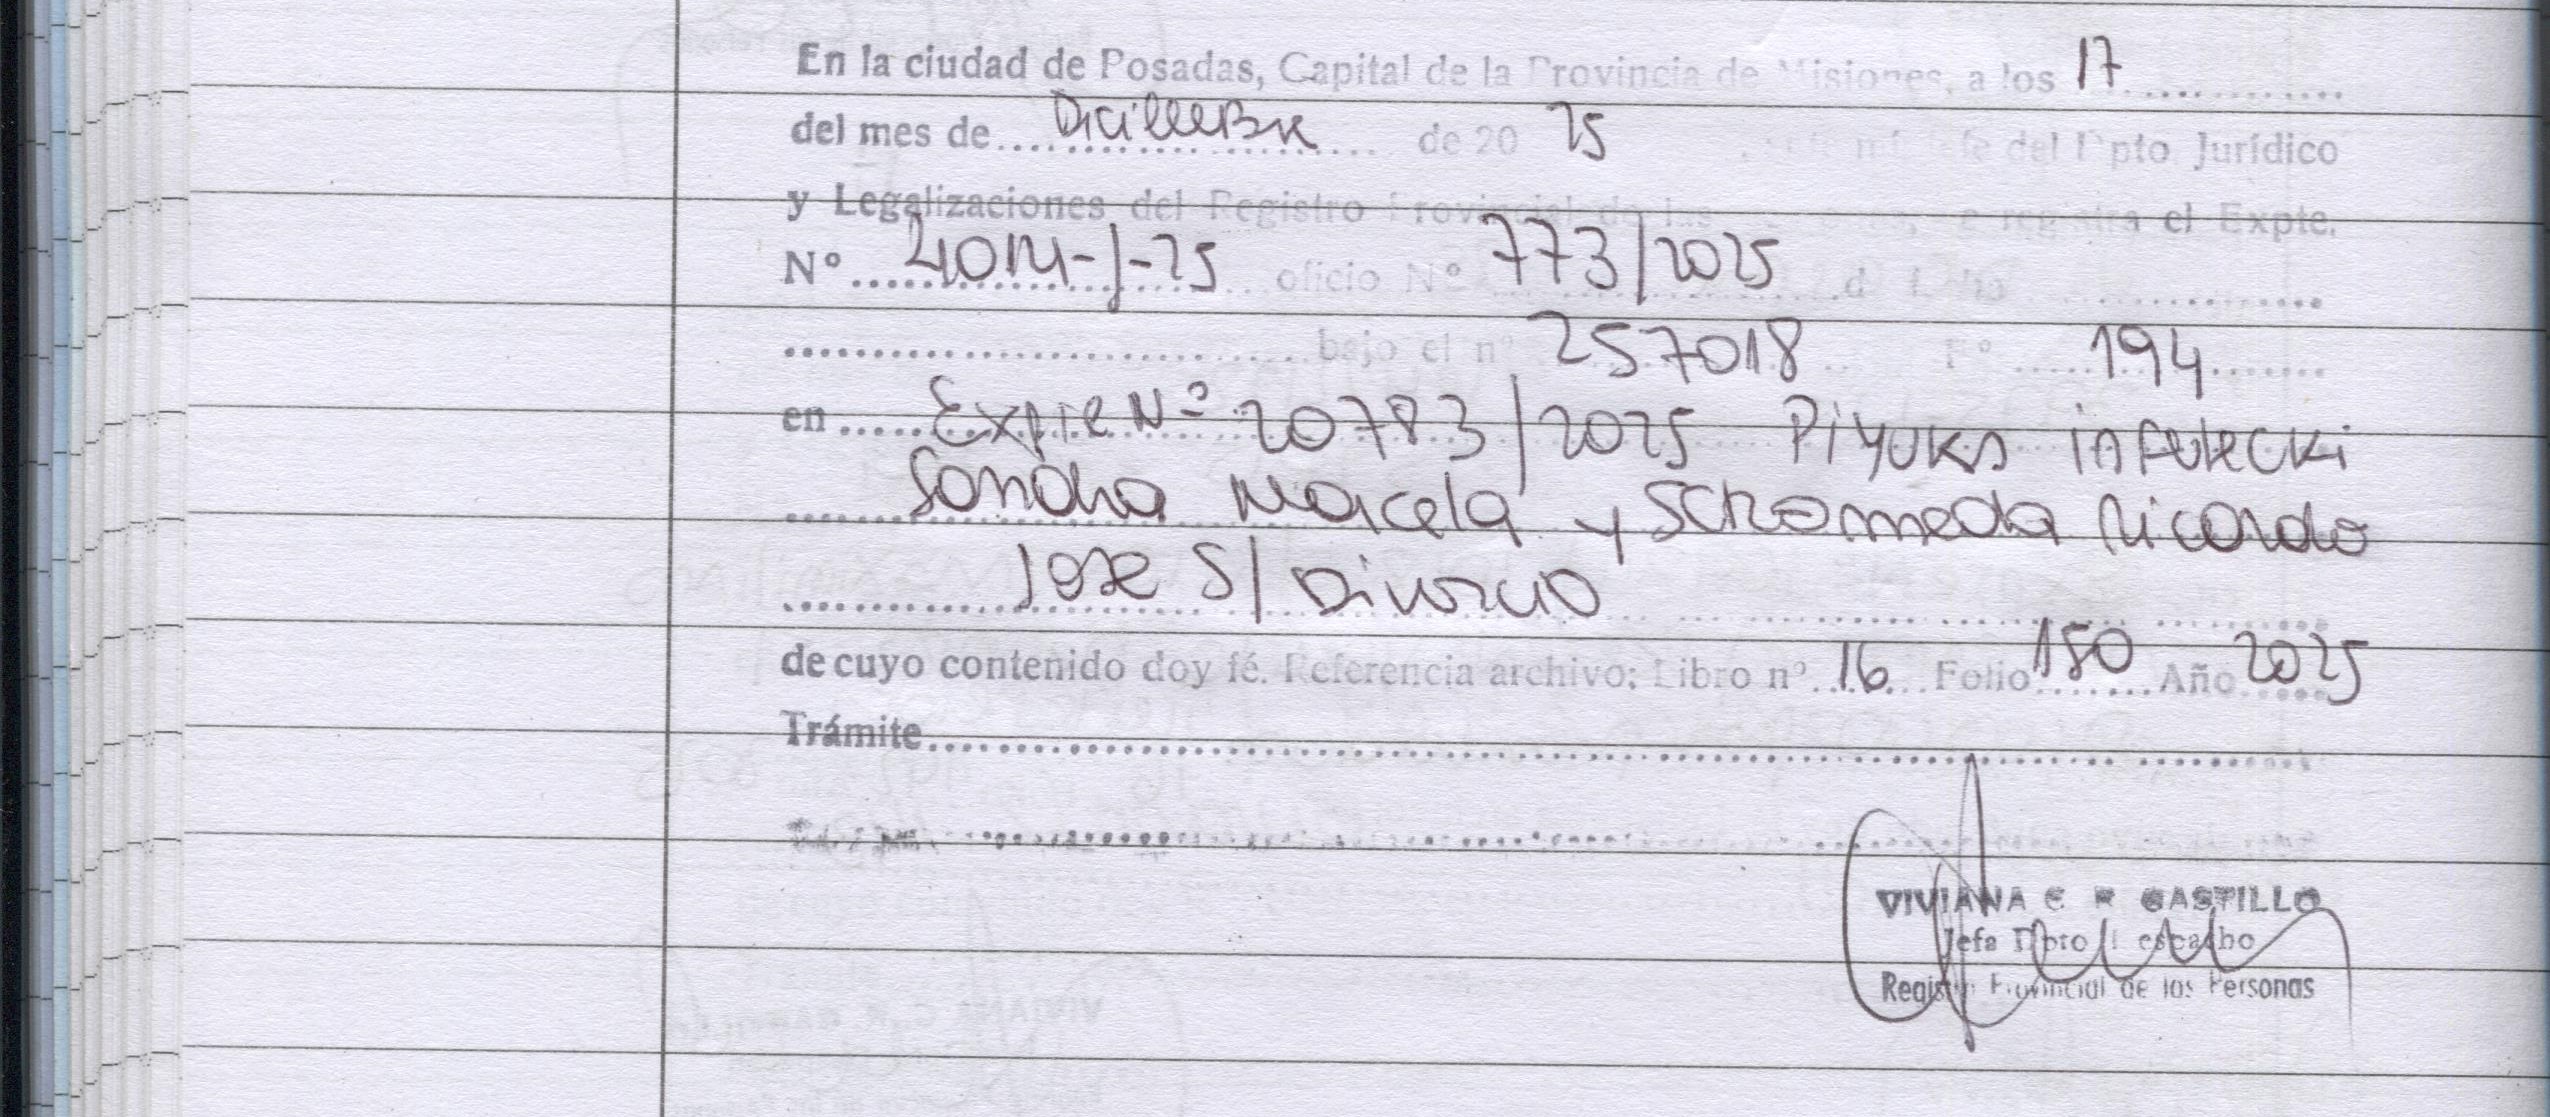 En la ciudad de Posadas, Capital de la Provincia de Misiones, a los 17
del mes de Diciembre de 20 25 ante mí Jefe del Dpto Jurídico
y Legalizaciones del Registro Provincial de las Personas, se registra el Expte.
Nº 4014-J-25 oficio Nº 773/2025
bajo el nº 257018 Fº 194
en Expte Nº 20783/2025 Piyuka
Sandra Marcela y Schromeda Ricardo
Jose S/ Divorcio
de cuyo contenido doy fé. Referencia archivo: Libro nº 16 Folio 150 Año 2025
Trámite
VIVIANA C R CASTILLO
Jefa Dpto Despacho
Registro Provincial de las Personas